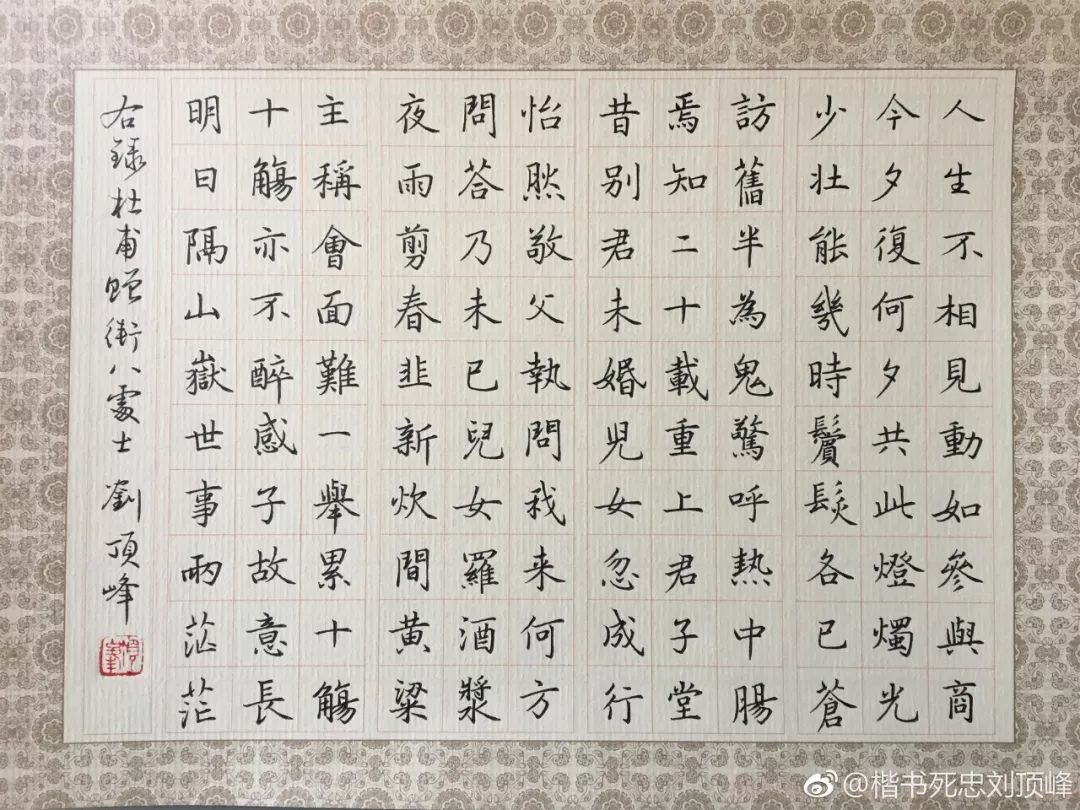 人生不相見動如參與商
今夕復何夕共此燈燭光
少壯能幾時鬢髮各已蒼
訪舊半為鬼驚呼熱中腸
焉知二十載重上君子堂
昔别君未婚兒女忽成行
怡然敬父執問我来何方
問答乃未已兒女羅酒漿
夜雨剪春韭新炊間黄粱
主稱會面難一舉累十觴
十觴亦不醉感子故意長
明日隔山嶽世事兩茫茫
右録杜甫贈衛八處士 劉頂峰
@楷书死忠刘顶峰